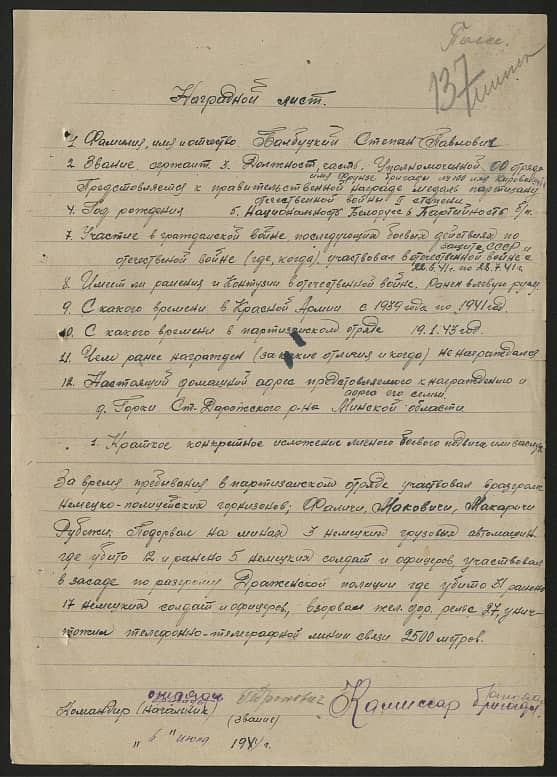 137
Наградной лист.
1 Фамилия, имя и отчество Балбуцкий Степан Павлович
2 Звание сержант 3. Должност, часть Уполномоченной ОО отряда
имя Фрунзе бригады № 100 имя Кирова
Предстовляется к правительственной награде медаль партизану
отечественой войны II степени
4. Год рождения 5. Национальность Белорусс 6 Партийность б/п.
7. Участие в гражданской войне, последующих боевых действиях по
защите СССР и
отечественой войне (где, когда) участвовал в отечественой войне с
22.6.41г. по 28.7.41г.
8. Имеет ли ранения и контузии в отечественой войне. Ранен в левую руку.
9. С какого времени в Красной Армии с 1939 года по 1941 год.
10. С какого времени в партизанском отряде 19.1.43 год.
11. Чем ранее награжден (за какие отличия и когда) не награждался
12. Настоящий домашний адрес предстовляемого к награждению и
адрес его семьи
д. Горки Ст-Дорожского р-на Минской области
1. Краткое конкретное изложение личного боевого подвига или заслуг
За время пребывания в партизанском отряде участвовал в разгроме
немецко-полицейских горнизонов; Фаличи, Маковичи, Макаричи
Рубежи. Подорвал на минах 3 немецких грузовых автомашин.
где убито 12 и ранено 5 немецких солдат и офицеров, участвовал
в засаде по разгрому Драженской полиции где убито 31 ранено
17 немецких солдат и офицеров, взорвал жел. дор. рельс 27, унич-
тожил телефонно-телеграфной линии связи 2500 метров.
Командир (Начальник) Петрович Комиссар бригады
(звание)
"6" июля 1944 г.